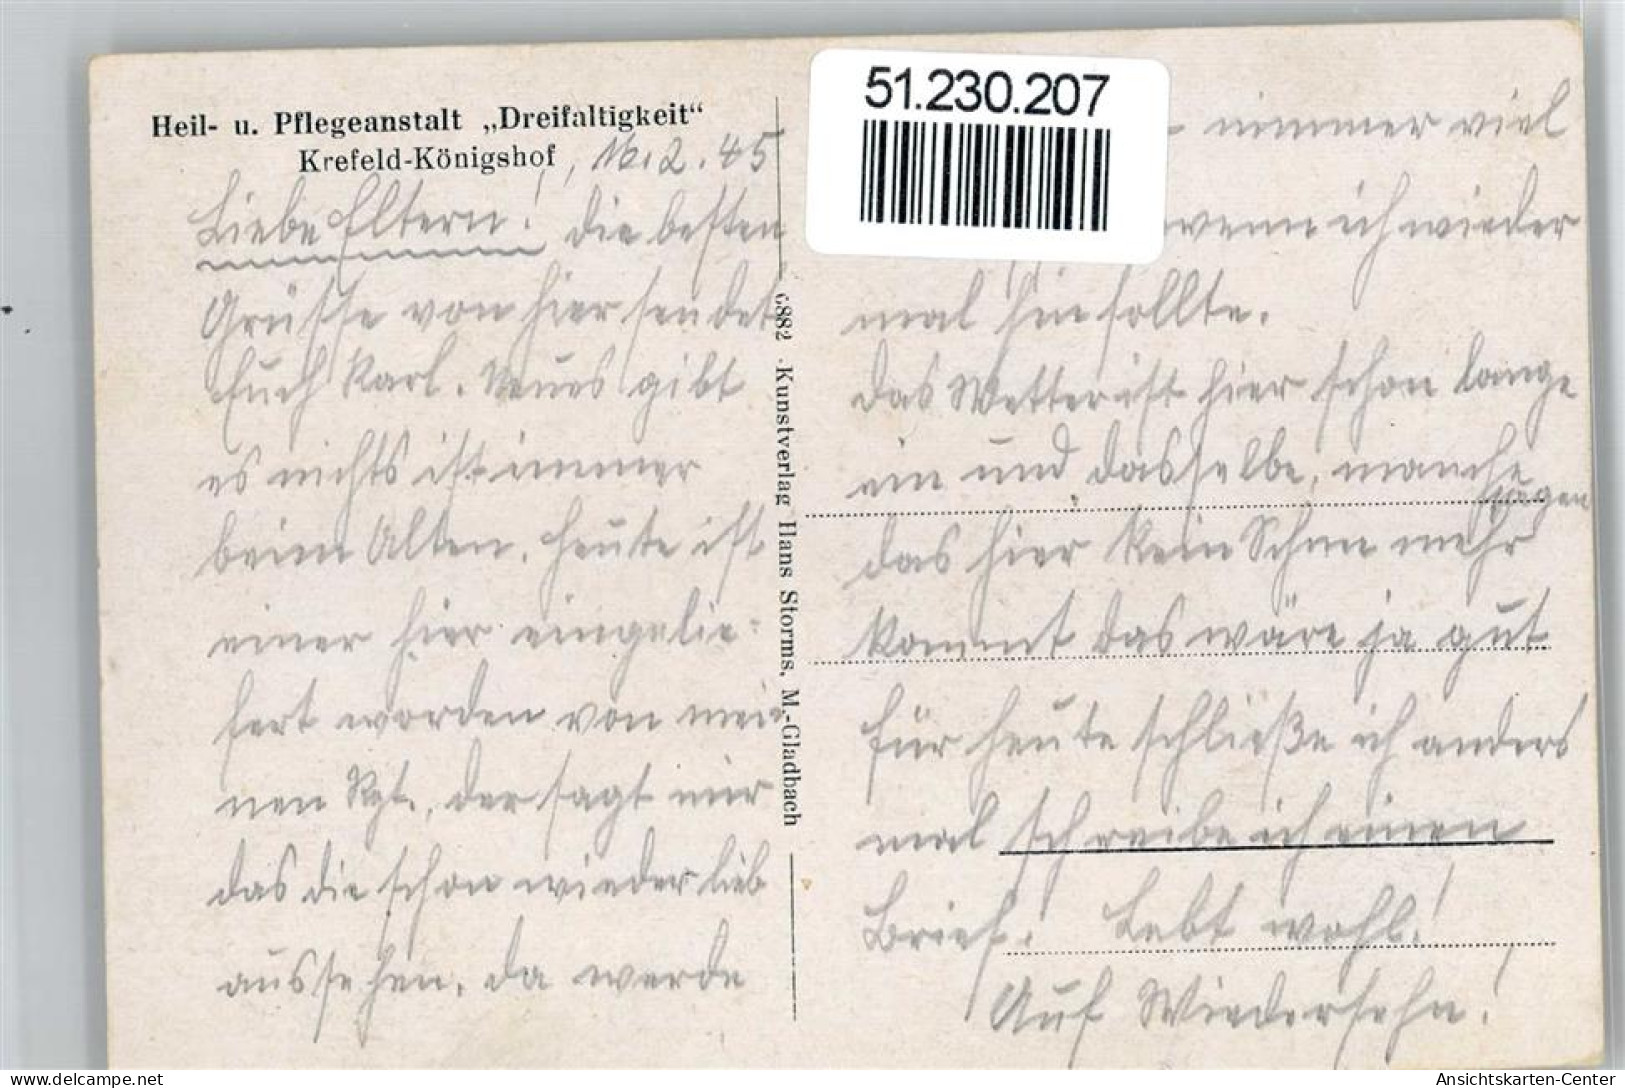 Heil- u. Pflegeanstalt „Dreifaltigkeit“
Krefeld-Königshof, 16.2.45
Liebe Eltern! Die besten
Grüsse von hier sendet
Euch Karl. Neues gibt
es nichts ist immer
beim Alten. Heute ist
einer hier eingelie-
fert worden von mei-
nen Rgt., der sagt mir
das die schon wieder lieb
aussehen. Da werde
6882 · Kunstverlag Hans Storms, M.-Gladbach
51.230.207
nimmer viel
wenn ich wieder
mal hin sollte.
Das Wetter ist hier schon lange
ein und dasselbe, manche
sagen
das hier kein Schnee mehr
kommt das wäre ja gut
für heute schließe ich anders
mal schreibe ich einen
Brief! Lebt wohl!
Auf Wiedersehn!
Ansichtskarten-Center